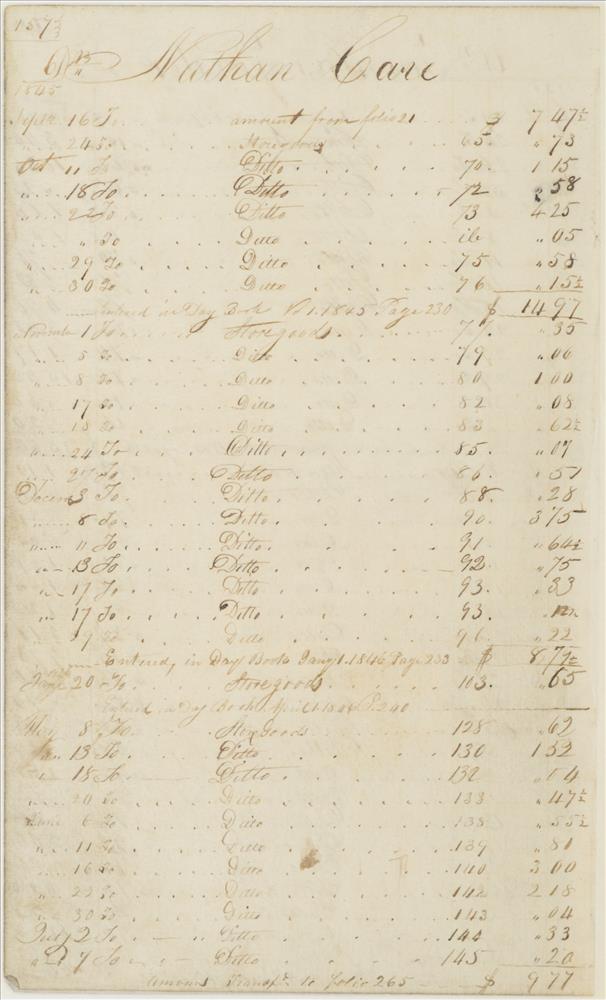 157½
Dr Nathan Care
1845
Septr 16 To amount from folio 21 3 7 47½
" 24 To Storegoods 65 " 73
Oct 11 To Ditto 70 1 15
" 18 To Ditto 72 " 58
" 22 To Ditto 73 4 25
" " To Ditto ib " 05
" 29 To Ditto 75 " 58
" 30 To Ditto 76 " 15½
entered in Day Book 1.1845 Page 230 $ 14 97
1 To Storegoods 77 " 35
" 5 To Ditto 79 " 06
" 8 To Ditto 80 1 00
" 17 To Ditto 82 " 08
" 18 To Ditto 83 " 62½
" 24 To Ditto 85 " 07
" 27 To Ditto 86 " 51
Decem 3 To Ditto 88 " 28
" 8 To Ditto 90 3 75
" 11 To Ditto 91 " 64½
" 13 To Ditto 92 " 75
" 17 To Ditto 93 " 33
" 17 To Ditto 93
29 To Ditto 96 " 22
Entered, in Day Book Jany 1.1846 Page 233 $ 8 79½
20 To Storegoods 103 " 65
Entered in Day Book April 1 P. 240
May 8 To Storegoods 128 " 62
" 13 To Ditto 130 1 52
" 18 To Ditto 132 " 04
" 20 To Ditto 133 " 47½
June 6 To Ditto 138 " 55½
" 11 To Ditto 139 " 81
" 16 To Ditto 140 3 00
" 22 To Ditto 142 2 18
" 30 To Ditto 143 " 04
July 2 To Ditto 144 " 33
" 7 To Ditto 145 " 20
Amount Transfd to folio 265 $ 9 77